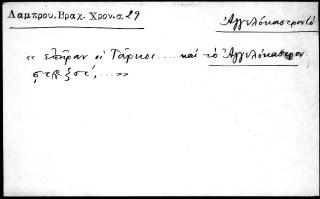 Λαμπρου. Βραχ. Χρον. σ. 29
Ἀγγελόκαστρον τὸ
« ἐπῆραν οἱ Τοῦρκοι .... καὶ τὸ Ἀγγελόκαστρον